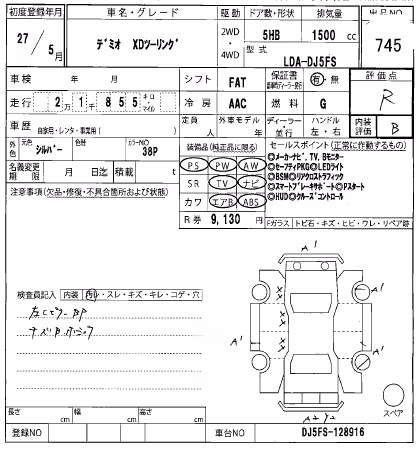 初度登録年月 車名・グレード 駆動 ドア数・形状 排気量 出品NO
27 / 5月 デミオ XDツーリング 2WD ・ 4WD 5HB 1500 cc 745
型式 LDA-DJ5FS
車検 年 月 シフト FAT 保証書 有・無 評価点
走行 2万1千855 キロ・マイル 冷房 AAC 燃料 G R
車歴 自家用・レンタ・事業用( ) 定員 人 外車モデル 年 ディーラー・並行 ハンドル 左・右 内装評価 B
外色 元色 シルバー 色替 カラーNO 38P
装備品(純正品に限る) セールスポイント(正常に作動するもの)
名義変更期限 月 日迄 積載 t
PS PW AW
SR TV ナビ
カワ エアB ABS
◎メーカーナビ, TV, Bモニター
◎セーフティPKG◎LEDライト
◎BSM◎リアクロストラフィック
◎スマートブレーキサポート◎Pスタート
◎HUD◎クルーズコントロール
注意事項(欠品・修復・不具合箇所および状態)
R券 9,130 円
Fガラス トビ石・キズ・ヒビ・ワレ・リペア跡
検査員記入 内装 ・スレ・キズ・キレ・コゲ・穴
A' A' A' A'
スペア
長さ cm 幅 cm 高さ cm
登録NO 車台NO DJ5FS-128916